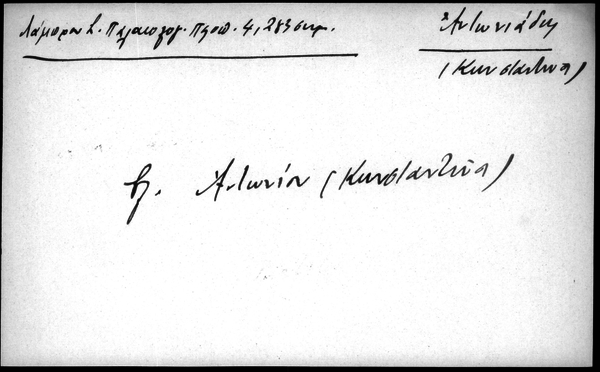 Λάμπρου Σ. Παλαιολογ. Πελοπ. 4, 283 σημ.
Ἀντωνιάδη
(Κωνσταντῖνο)
βλ. Ἀντωνίου (Κωνσταντῖνο)